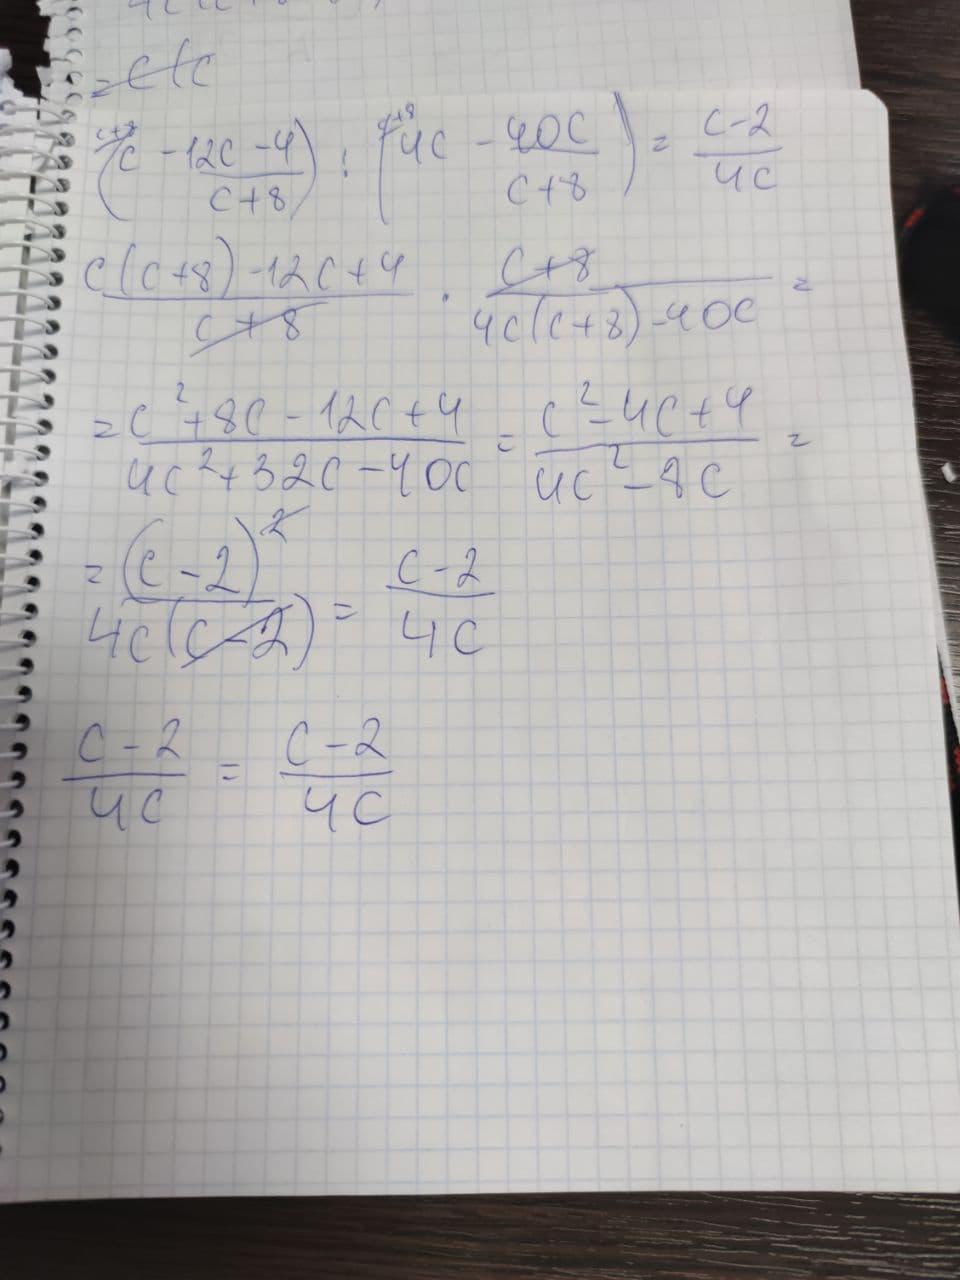 = c(c
(c - \frac{12c-4}{c+8}) : (4c - \frac{40c}{c+8}) = \frac{c-2}{4c}
\frac{c(c+8)-12c+4}{c+8} \cdot \frac{c+8}{4c(c+8)-40c} =
= \frac{c^2+8c-12c+4}{4c^2+32c-40c} = \frac{c^2-4c+4}{4c^2-8c} =
= \frac{(c-2)^2}{4c(c-2)} = \frac{c-2}{4c}
\frac{c-2}{4c} = \frac{c-2}{4c}